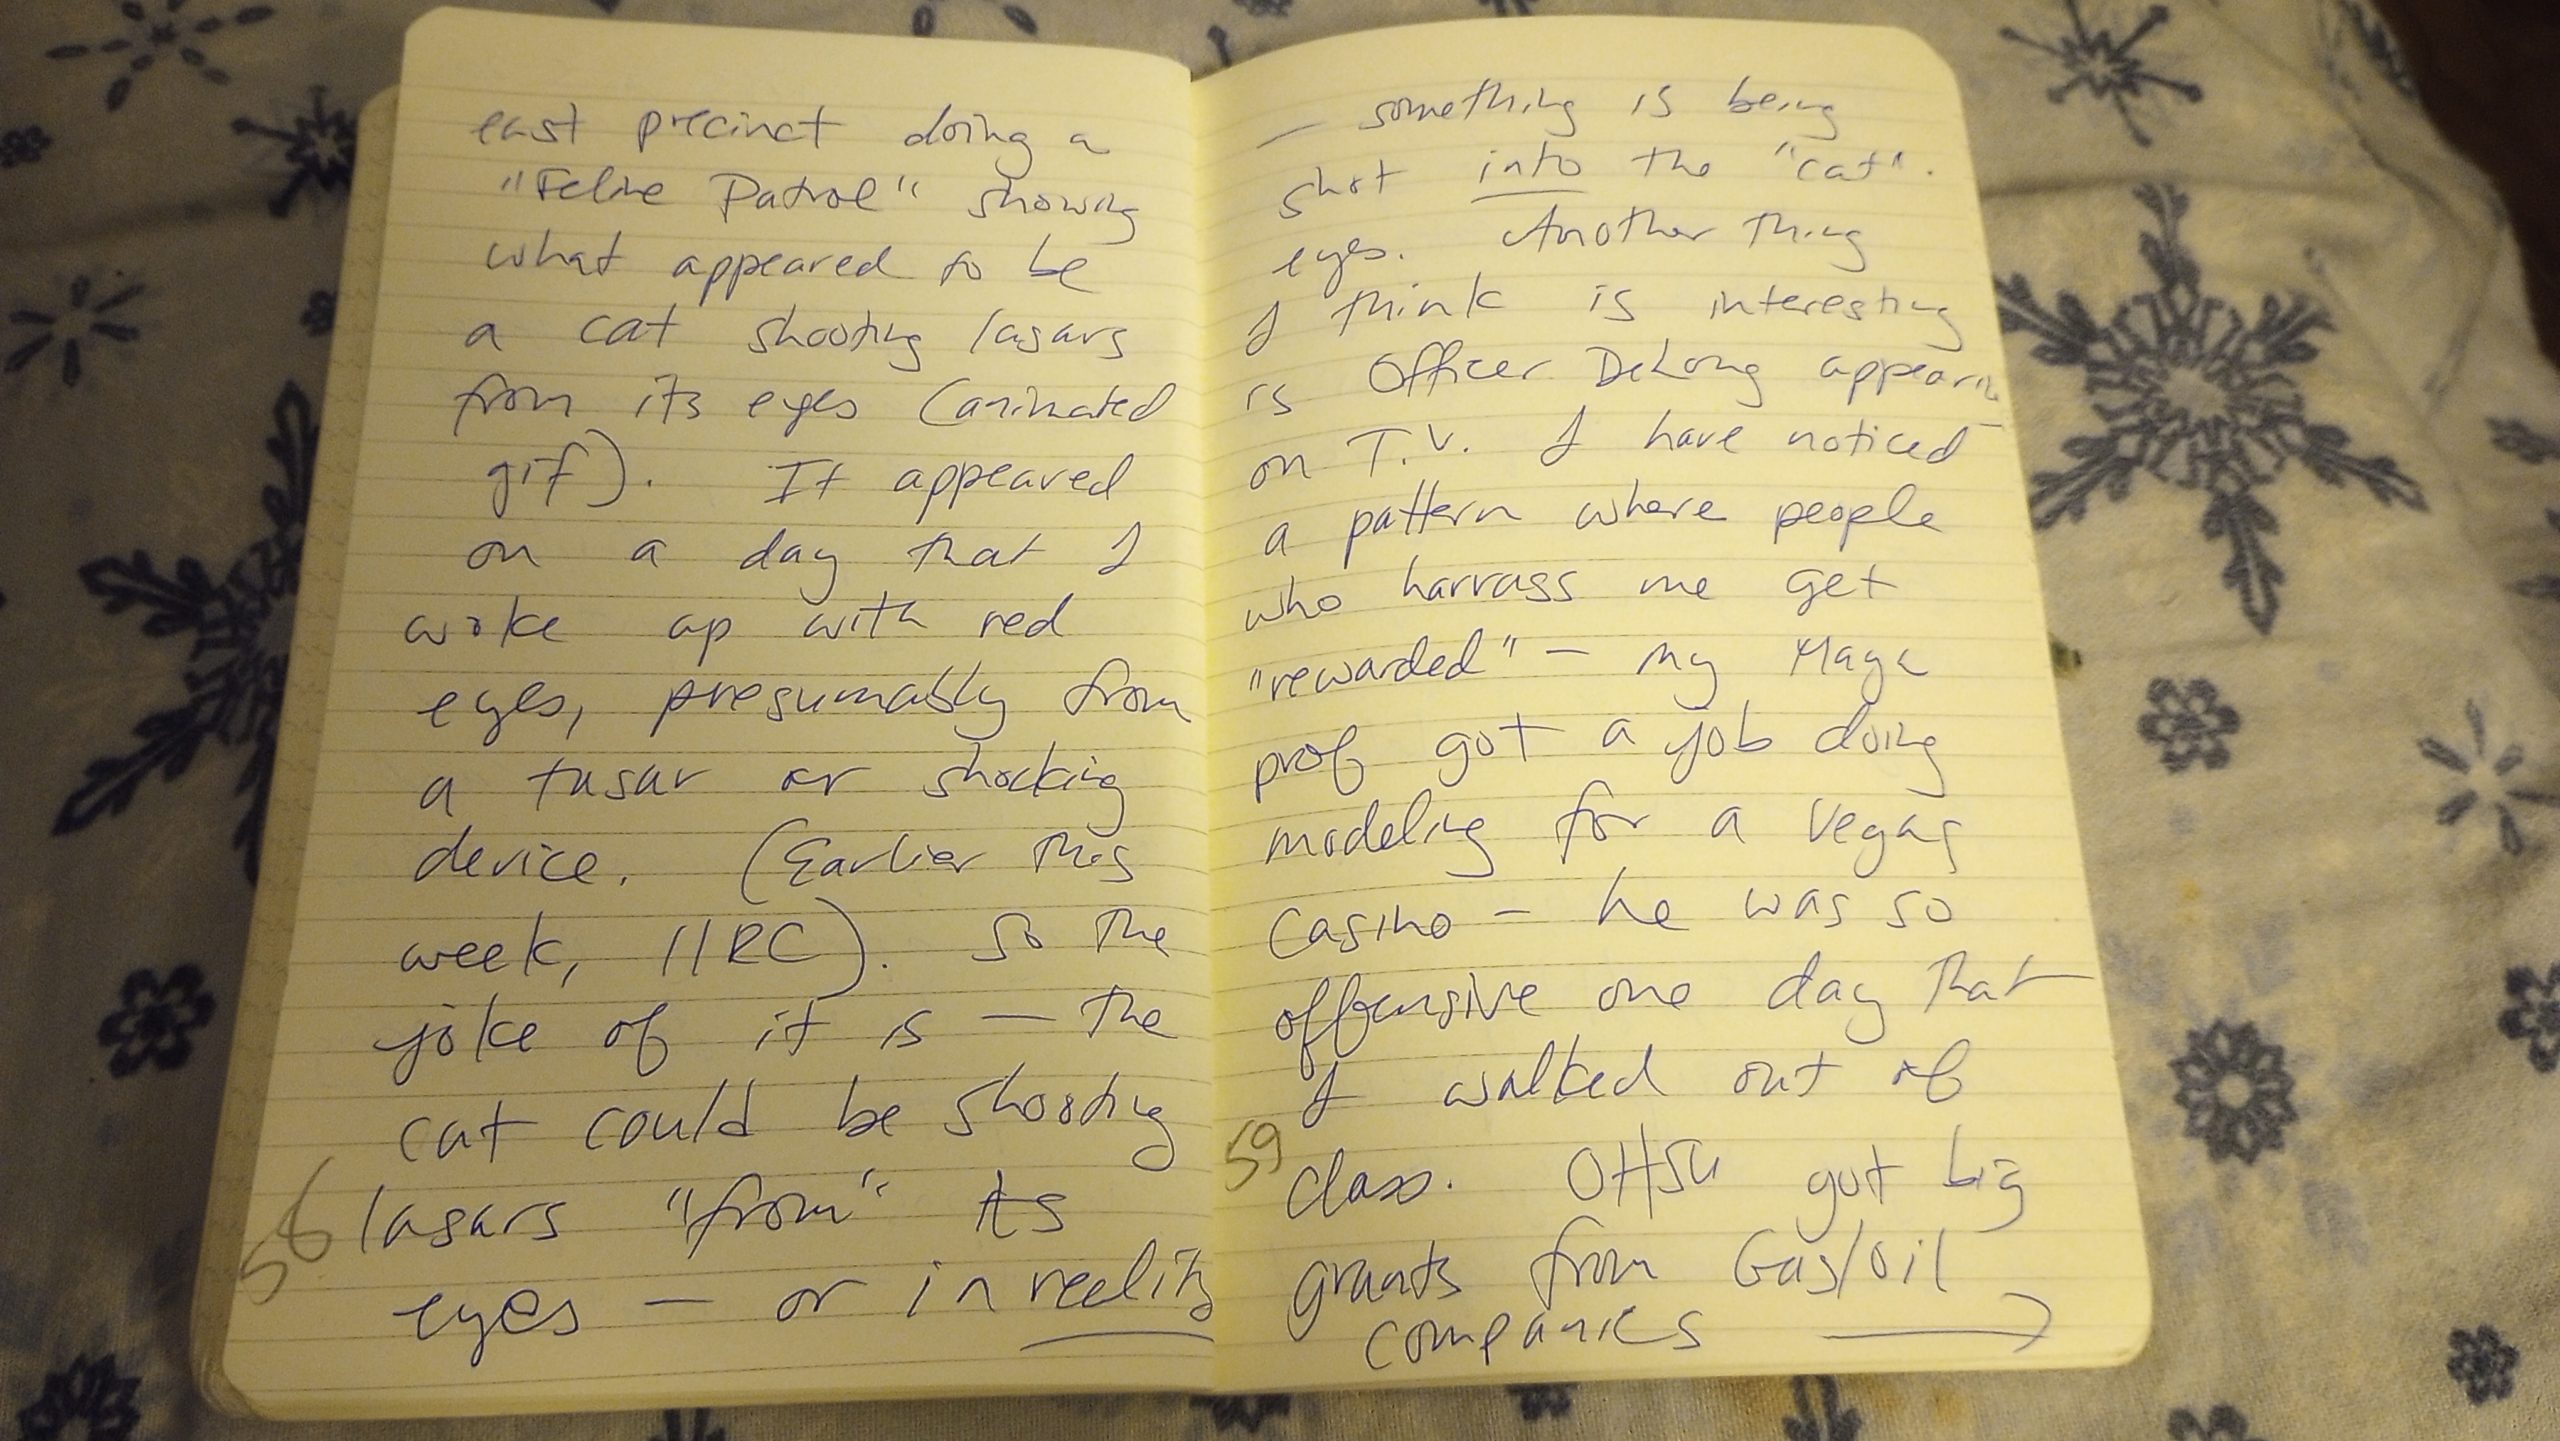 east precinct doing a
"Feline Patrol" showing
what appeared to be
a cat shooting lasars
from its eyes (animated
gif). It appeared
on a day that I
woke up with red
eyes, presumably from
a tasar or shocking
device. (Earlier this
week, IIRC). So the
joke of it is — the
cat could be shooting
lasars "from" its
eyes — or in reality
56
— something is being
shot into the "cat".
eyes. Another thing
I think is interesting
is Officer DeLong appearin
on T.V. I have noticed
a pattern where people
who harrass me get
"rewarded" — my Maga
prof got a job doing
modeling for a Vegas
Casino — he was so
offensive one day that
I walked out of
class. OHSU got big
grants from Gas/oil
companies →
59